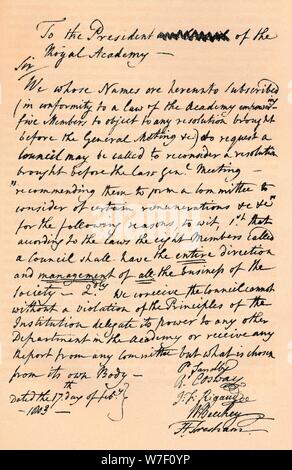 To the President of the
Royal Academy —
Sir
We whose Names are hereunto Subscribed
(in conformity to a law of the Academy empowerg
five Members to object to any resolution brought
before the General Meeting &c) do request a
Council may be called to reconsider a resolution
brought before the last Genl. Meeting —
"recommending them to form a Committee to
consider of certain remunerations &c &c"
for the following reasons to wit, 1st. that
acording to the laws the eight Members called
a Council shall have the entire direction
and management of all the business of the
Society — 2dly We conceive the Council cannot
without a violation of the Principles of the
Institution delegate its power to any other
Department in the Academy or receive any
Report from any committee but what is chosen
from its own Body —
P. Sandby
R. Cosway
J. F. Rigaud
W Beechey
dated the 17th day of
1803
alamy
W7F0YP